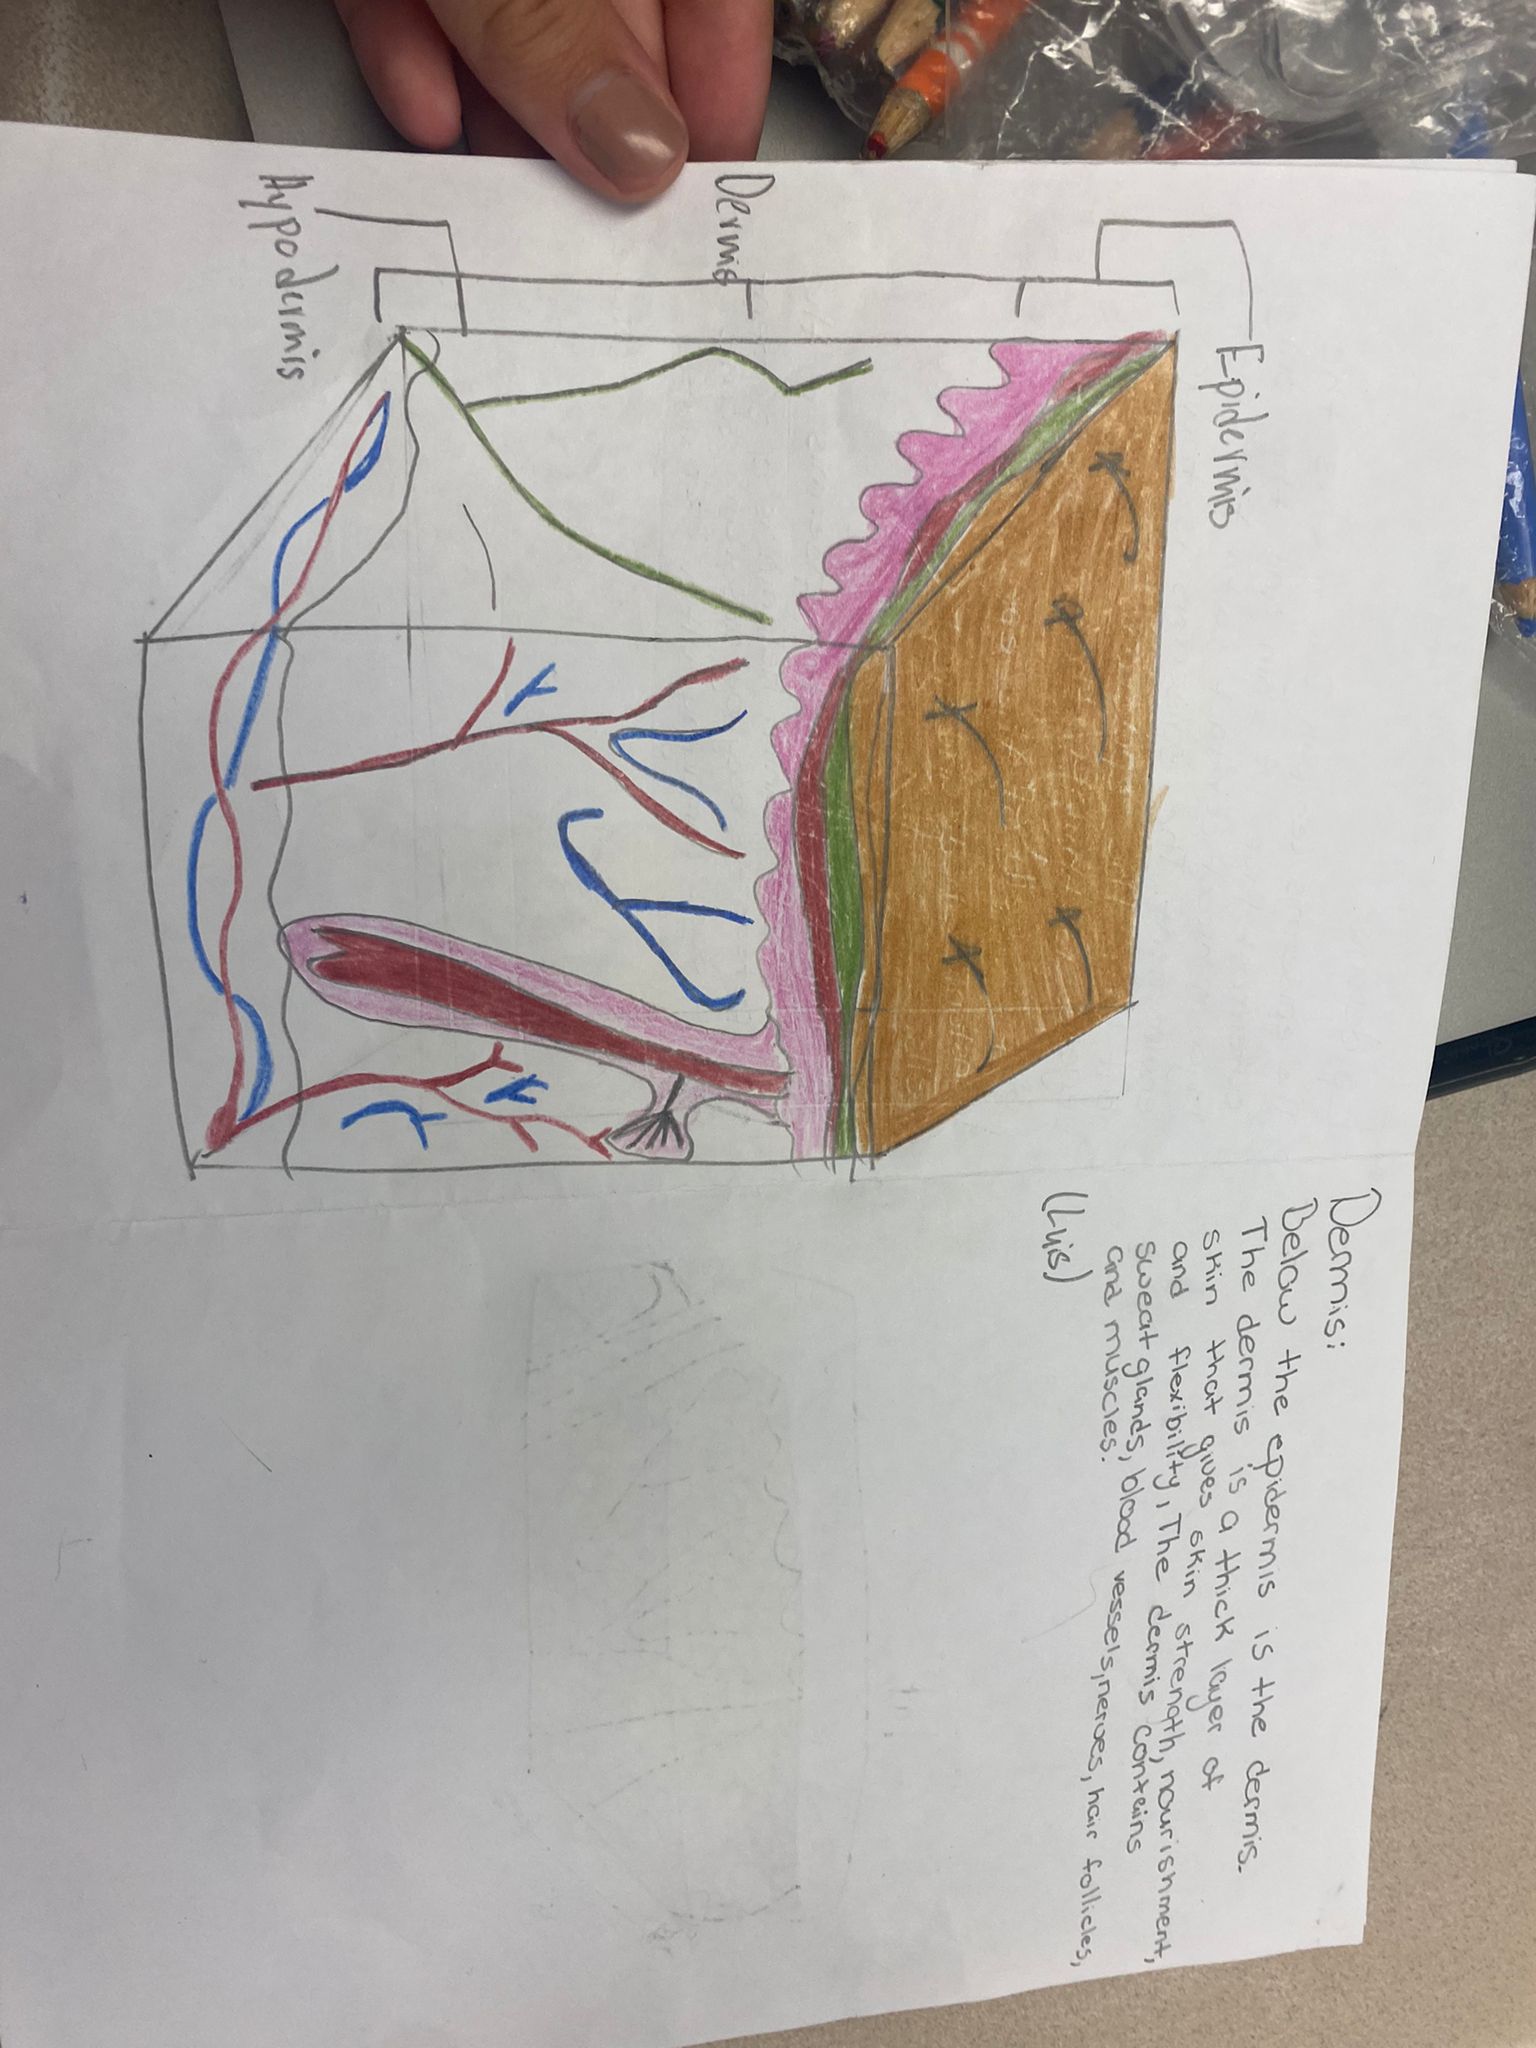 Epidermis
Dermis
Hypodermis
Dermis:
Below the epidermis is the dermis.
The dermis is a thick layer of
skin that gives skin strength, nourishment,
and flexibility, The dermis conteins
sweat glands, blood vessels, nerves, hair follicles,
and muscles.
(Luis)